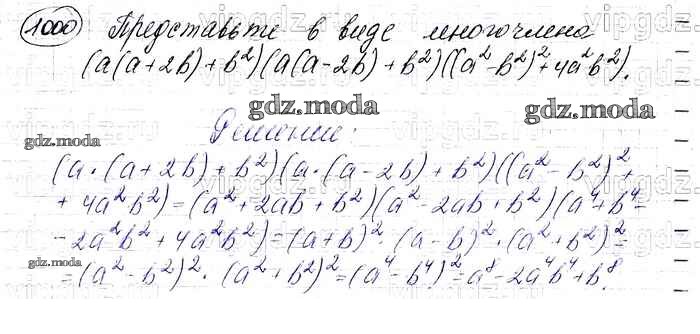 1000 Представьте в виде многочлена
(a(a+2b)+b²)(a(a-2b)+b²)((a²-b²)²+4a²b²).
gdz.moda gdz.moda
gdz.moda Решение:
(a·(a+2b)+b²)(a·(a-2b)+b²)((a²-b²)²+
+4a²b²)=(a²+2ab+b²)(a²-2ab+b²)(a⁴+b⁴-
-2a²b²+4a²b²)=(a+b)²·(a-b)²·(a²+b²)²=
gdz.moda
=(a²-b²)²·(a²+b²)²=(a⁴-b⁴)²=a⁸-2a⁴b⁴+b⁸.